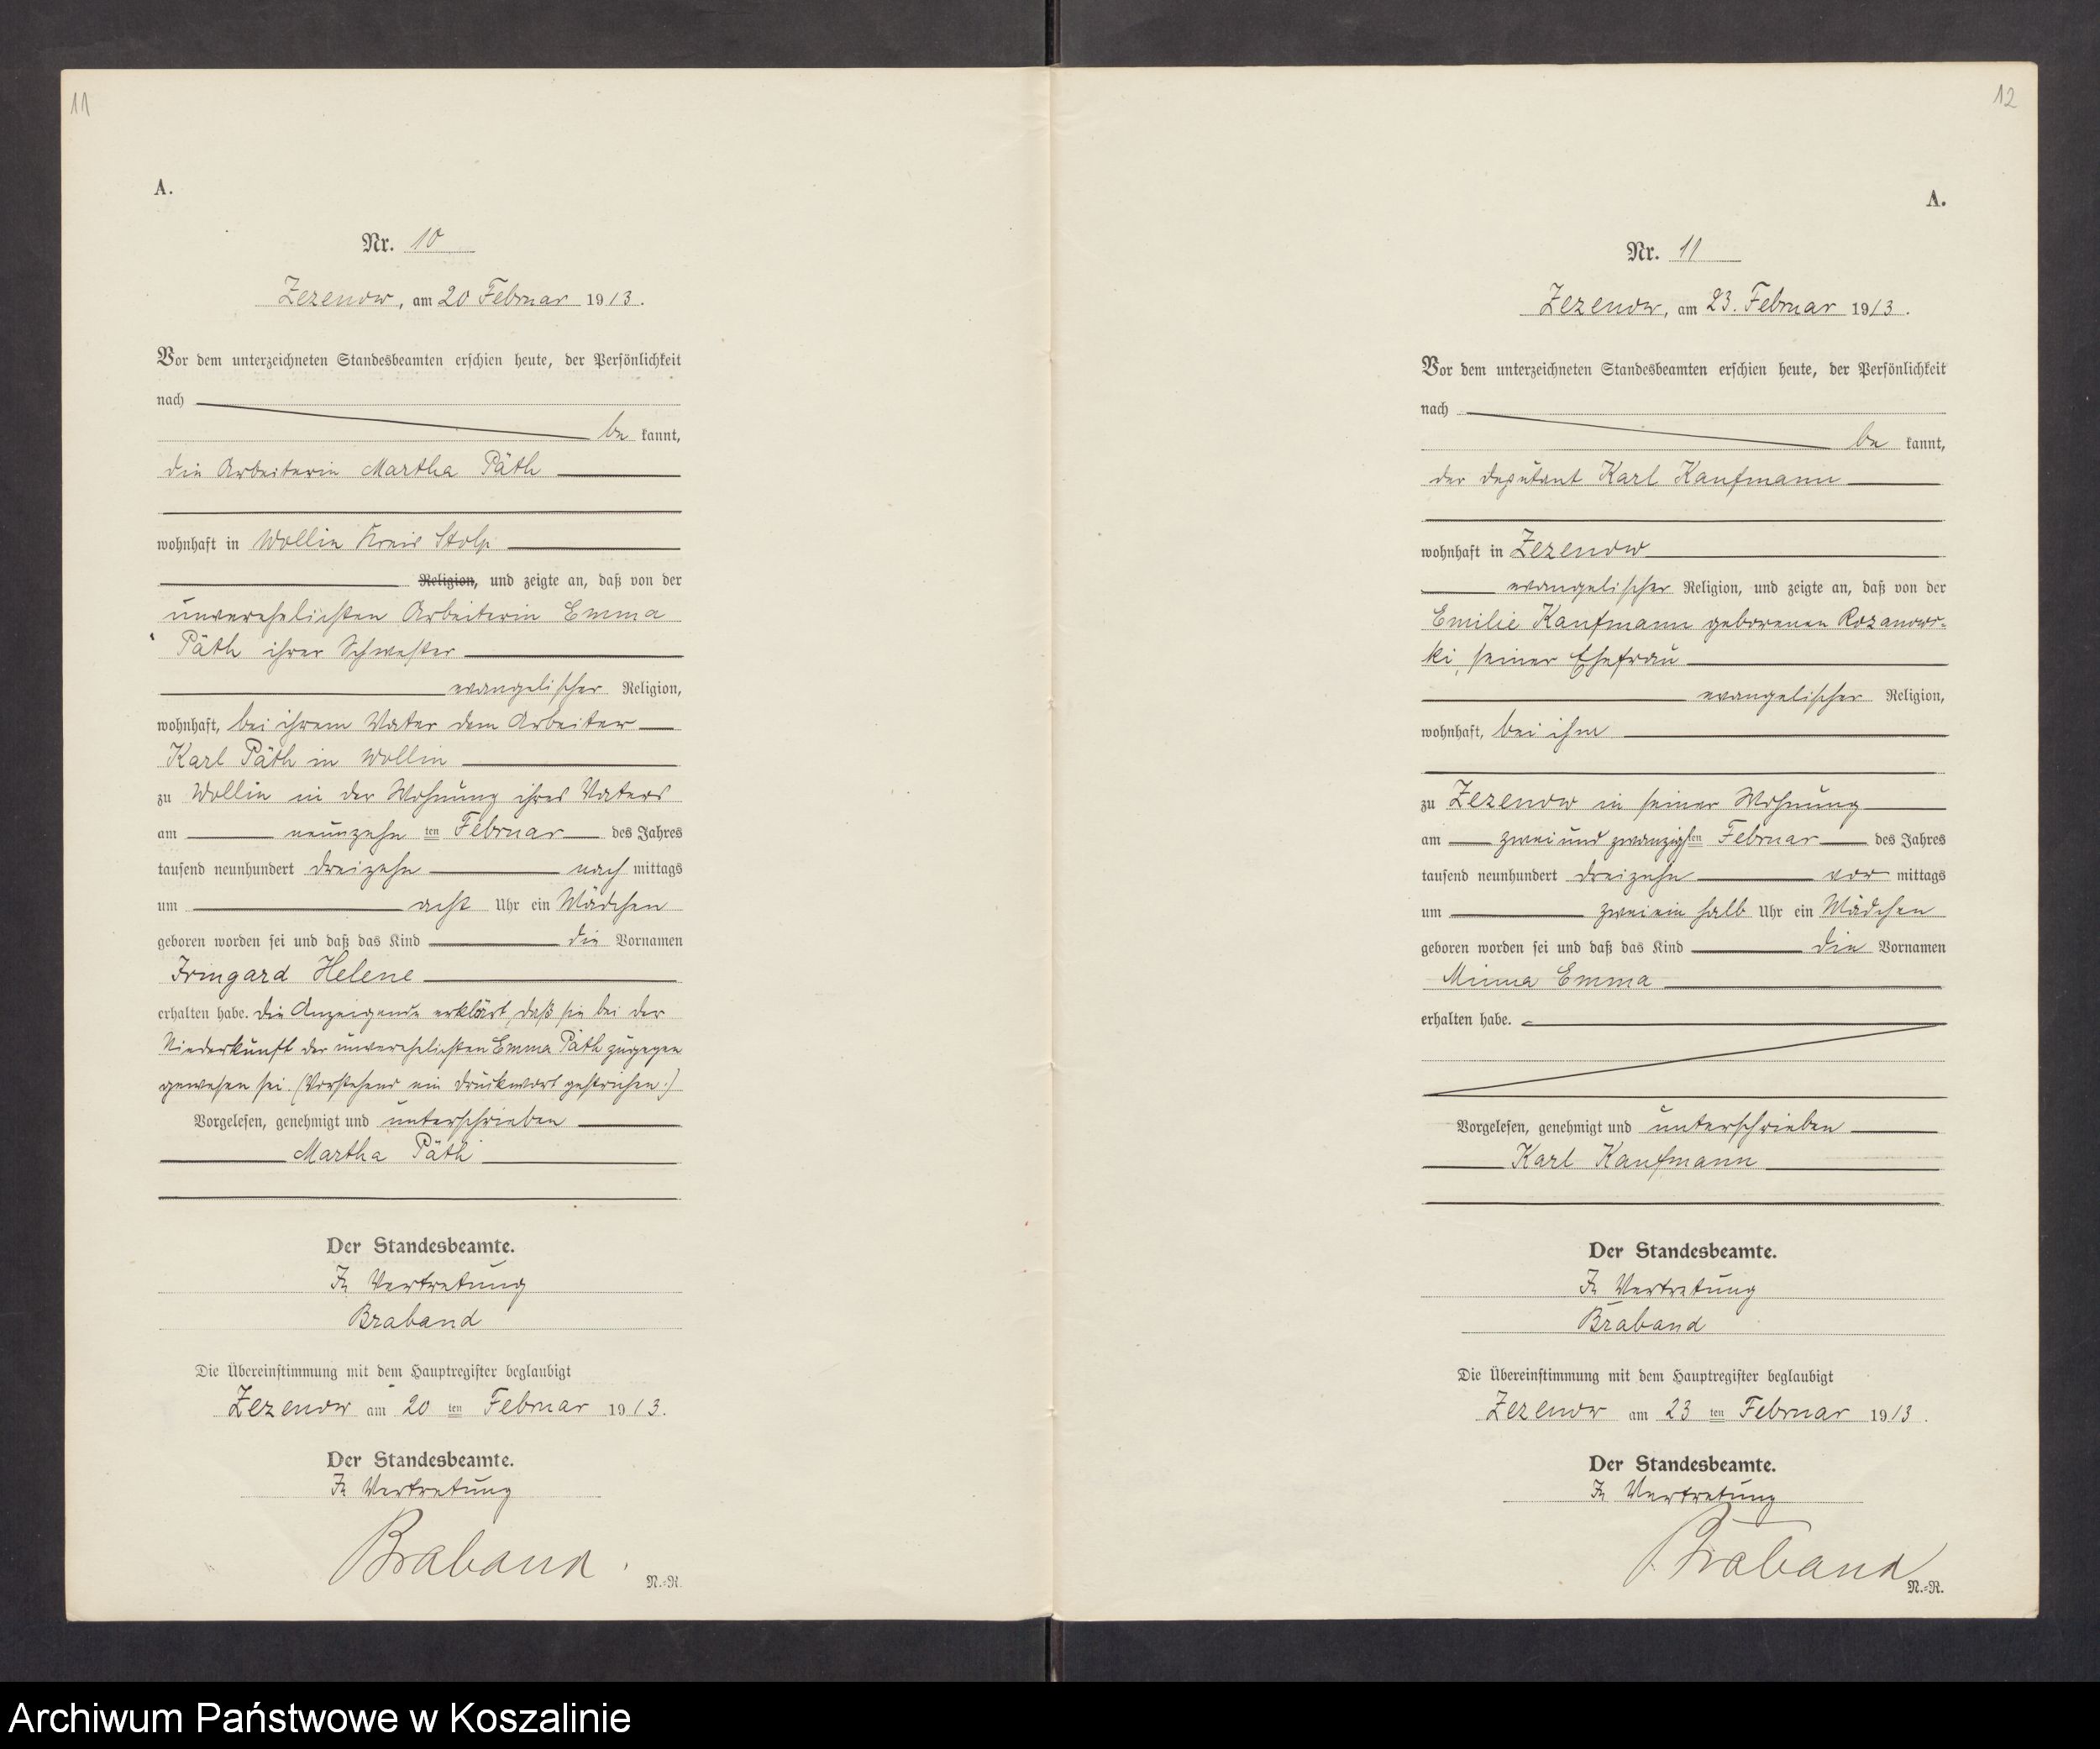 11
A.
Nr. 10
Zezenow, am 20 Februar 1913.
Vor dem unterzeichneten Standesbeamten erschien heute, der Persönlichkeit
nach
be kannt,
die Arbeiterin Martha Päth
wohnhaft in Wollin Kreis Stolp
Religion, und zeigte an, daß von der
unverehelichten Arbeiterin Emma
Päth ihrer Schwester
evangelischer Religion,
wohnhaft, bei ihrem Vater dem Arbeiter
Karl Päth in Wollin
zu Wollin in der Wohnung ihres Vaters
am neunzehn ten Februar des Jahres
tausend neunhundert dreizehn nach mittags
um acht Uhr ein Mädchen
geboren worden sei und daß das Kind die Vornamen
Irmgard Helene
erhalten habe. Die Anzeigende erklärt, daß sie bei der
Niederkunft der unverehelichten Emma Päth zugegen
gewesen sei. (Vorstehend ein Druckwort gestrichen.)
Vorgelesen, genehmigt und unterschrieben
Martha Päth
Der Standesbeamte.
In Vertretung
Braband
Die Übereinstimmung mit dem Hauptregister beglaubigt
Zezenow am 20 ten Februar 1913.
Der Standesbeamte.
In Vertretung
Braband.
N.=R.
12
A.
Nr. 11
Zezenow, am 23. Februar 1913.
Vor dem unterzeichneten Standesbeamten erschien heute, der Persönlichkeit
nach
be kannt,
der Deputant Karl Kaufmann
wohnhaft in Zezenow
evangelischer Religion, und zeigte an, daß von der
Emilie Kaufmann geborenen Rozanows-
ki, seiner Ehefrau
evangelischer Religion,
wohnhaft, bei ihm
zu Zezenow in seiner Wohnung
am zwei und zwanzigsten Februar des Jahres
tausend neunhundert dreizehn vor mittags
um zwei ein halb Uhr ein Mädchen
geboren worden sei und daß das Kind die Vornamen
Minna Emma
erhalten habe.
Vorgelesen, genehmigt und unterschrieben
Karl Kaufmann
Der Standesbeamte.
In Vertretung
Braband
Die Übereinstimmung mit dem Hauptregister beglaubigt
Zezenow am 23 ten Februar 1913.
Der Standesbeamte.
In Vertretung
Braband
N.=R.
Archiwum Państwowe w Koszalinie